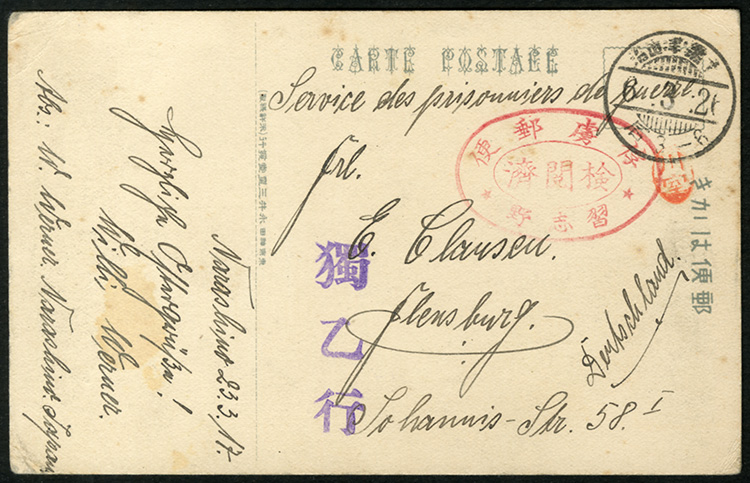 CARTE POSTALE
Service des prisonniers de guerre.
俘虜郵便
検閲済
習志野
Frl.
E. Clausen.
Flensburg.
Johannis-Str. 58. I
Deutschland.
獨乙行
郵便はがき
Narashino 23.3.17.
Herzliche Ostergrüße!
Willi Werner.
Abs.: W. Werner. Narashino. Japan